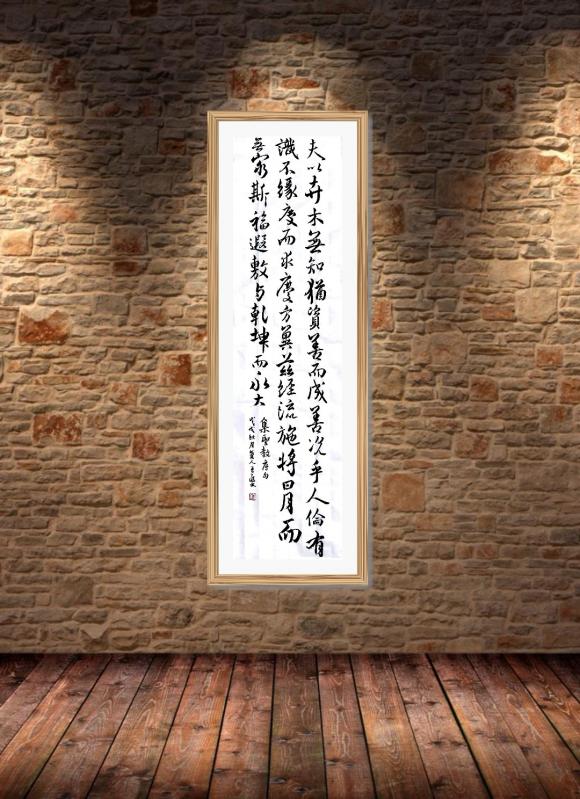 夫以卉木無知猶資善而成善况乎人倫有
識不緣慶而求慶方冀茲經流施將日月而
無窮斯福遐敷与乾坤而永大
集聖教序句
戊戌